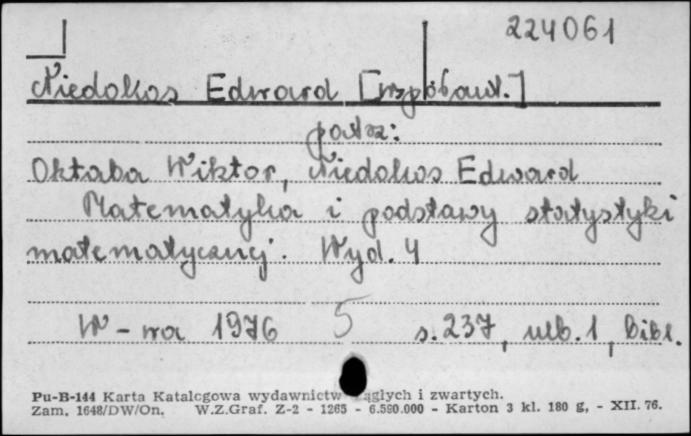 224061
Niedokos Edward [współaut.]
patrz:
Oktaba Wiktor, Niedokos Edward
Matematyka i podstawy statystyki
matematycznej. Wyd. 4
W-wa 1976 5 s. 237, ulb. 1, bibl.
Pu-B-144 Karta Katalogowa wydawnictw ągłych i zwartych.
Zam. 1648/DW/On. W.Z.Graf. Z-2 - 1265 - 6.590.000 - Karton 3 kl. 180 g, - XII. 76.